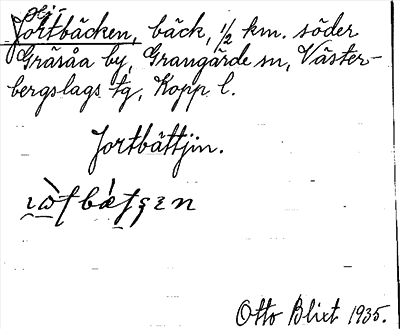 Jortbäcken, bäck, 1/2 km. söder
Gräsåa by, Grangärde sn, Väster-
bergslags tg, Kopp l.
Jortbättjin.
Otto Blixt 1935.